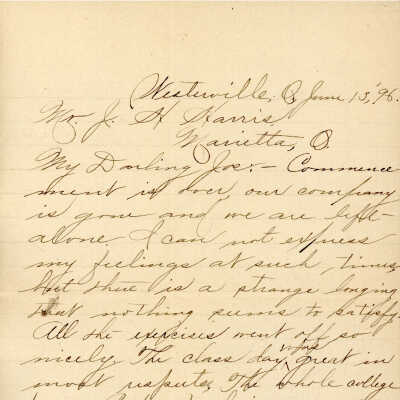 Westerville, O, June 13,'96.
Mr. J. H Harris
Marietta, O.
My Darling Joe:- Commence
ment is over, our company
is gone and we are left
alone. I can not express
my feelings at such, times,
but there is a strange longing
that nothing seems to satisfy.
All the exercises went off so
nicely. The class day was great in
most respects. The whole college